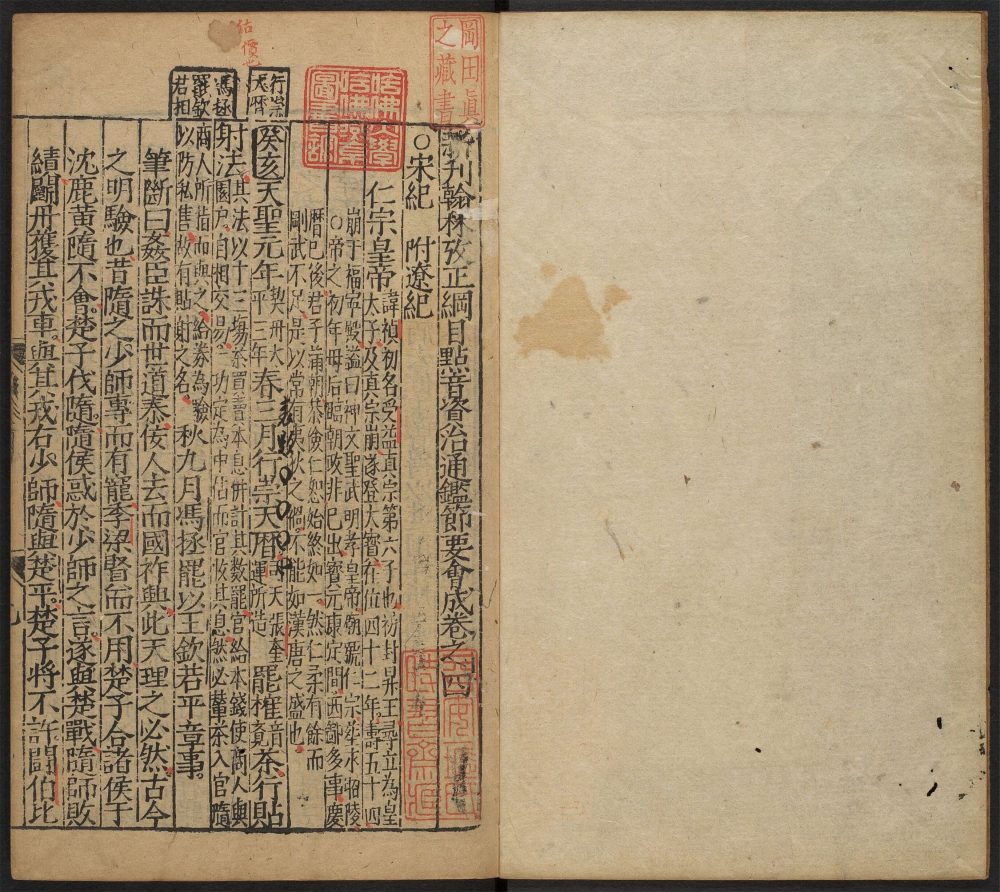 岡田眞
之藏書
哈佛大學
哈佛燕京
圖書館
估價也
新刊翰林攷正綱目點音資治通鑑節要會成卷之四
○宋紀 附遼紀
仁宗皇帝
諱禎初名受益真宗第六子也初封昇王尋立為皇
太子及真宗崩遂登大寶在位四十二年壽五十四
崩于福寧殿謚曰神文聖武明孝皇帝廟號仁宗塟永昭陵
○帝之初年母后臨朝政非已出寳元康定間西鄙多事慶
曆已後君子滿朝恭儉仁恕始終如一然仁柔有餘而
剛武不足是以常有夷狄之禍不能如漢唐之盛也
行崇
天曆
癸亥天聖元年
契丹太
平三年
春三月行崇天曆
司天張奎
運所造
罷榷
音
竟
茶行貼
射法
其法以十三塲茶買賣本息併計其數罷官給本錢使商人與
園户自相交易一切定為中估而官收其息然必輦茶入官隨
馮拯
罷欽
君相
商人所指而與之給券為驗
以防私售故有貼射之名
秋九月馮拯罷以王欽若平章事
筆斷曰姦臣誅而世道泰佞人去而國祚興此天理之必然古今
之明驗也昔隨之少師專而有寵季梁賢而不用楚子合諸侯于
沈鹿黄隨不會楚子伐隨隨侯惑於少師之言遂與楚戰隨師敗
績鬬丹獲其戎車與其戎右少師隨與楚平楚子將不許鬬伯比